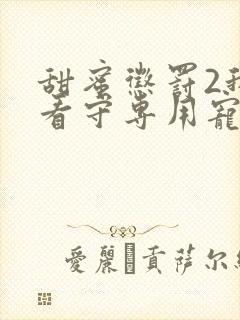 甜蜜懲罰2我
看守專用寵
愛麗 貢萨尔維